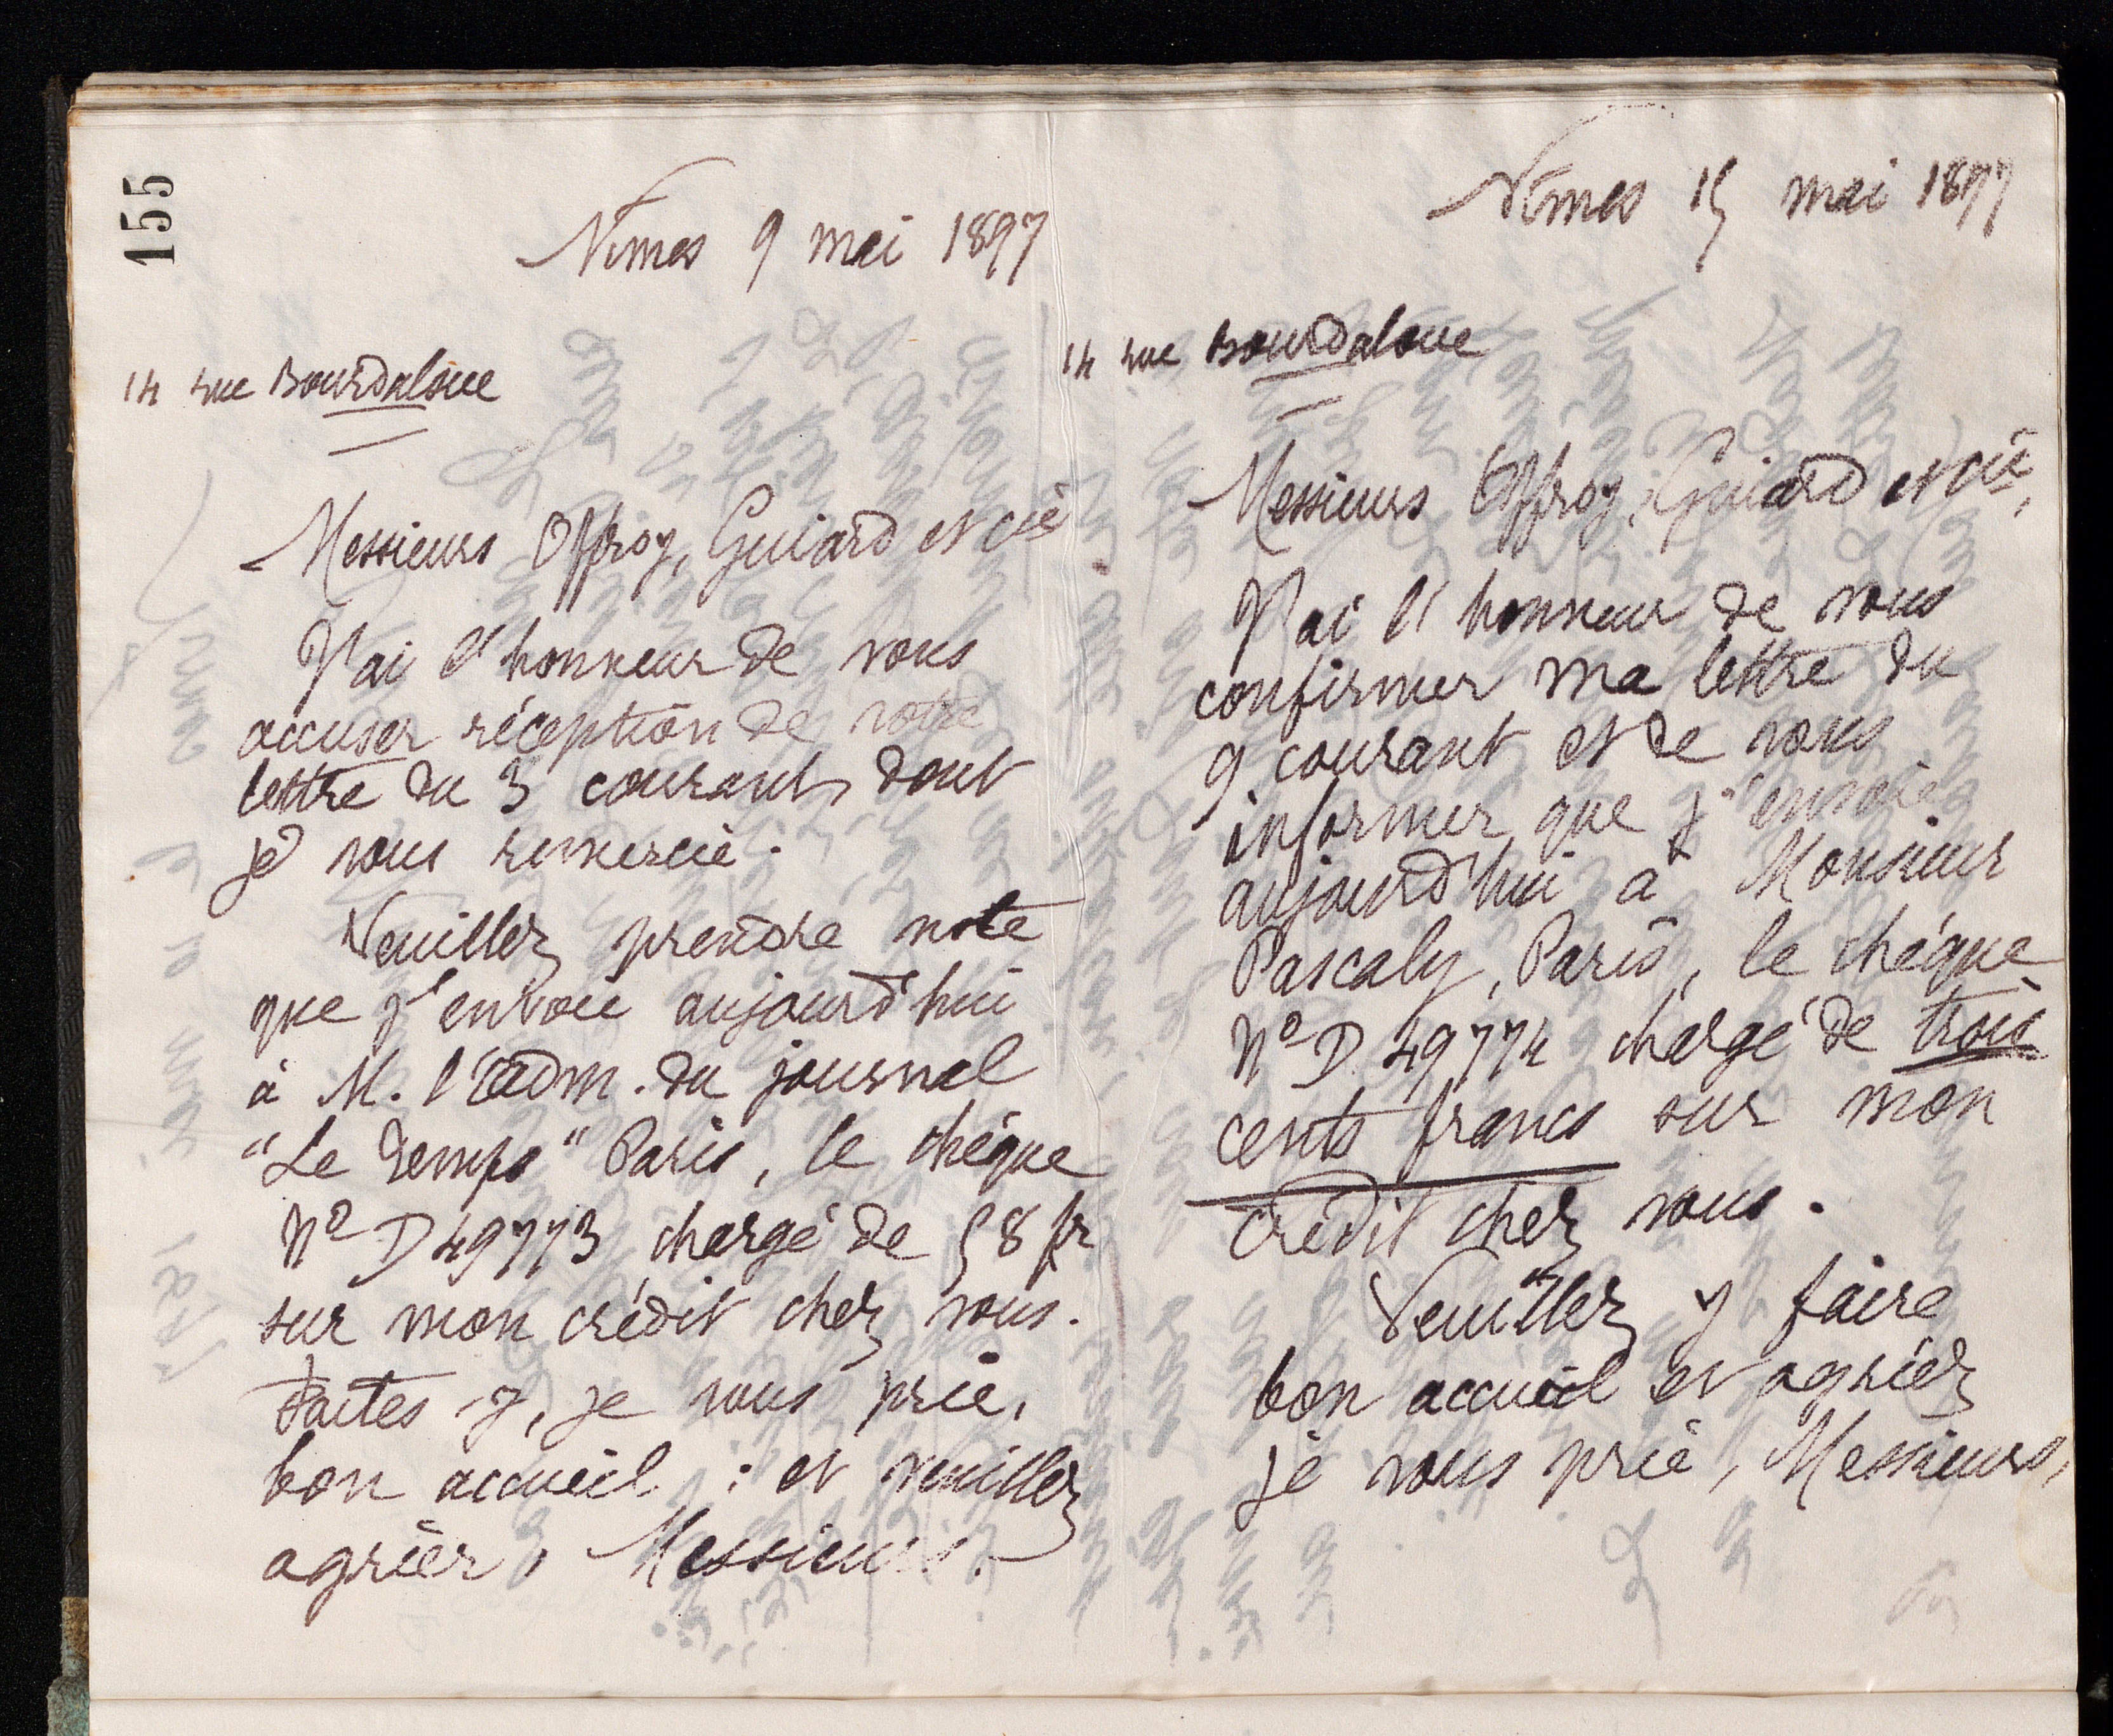 155
Nimes 9 mai 1897
14 rue Bourdaloue
Messieurs Offroy, Guiard et cie
J'ai l'honneur de vous
accuser réception de votre
lettre du 3 courant, dont
je vous remercie.
Veuillez prendre note
que j'envoie aujourd'hui
à M. l'adm. du journal
"Le Temps" Paris, le chèque
No D 49773 chargé de 58 fr
sur mon crédit chez vous.
Faites-y, je vous prie,
bon accueil; et veuillez
agréer, Messieurs.
Nîmes 15 mai 1897
14 rue Bourdaloue
Messieurs Offroy, Guiard et cie,
J'ai l'honneur de vous
confirmer ma lettre du
9 courant et de vous
informer que j'envoie
aujourd'hui à Monsieur
Pascaly, Paris, le chèque
No D 49774 chargé de trois
cents francs sur mon
crédit chez vous.
Veuillez y faire
bon accueil et agréez
je vous prie, Messieurs,